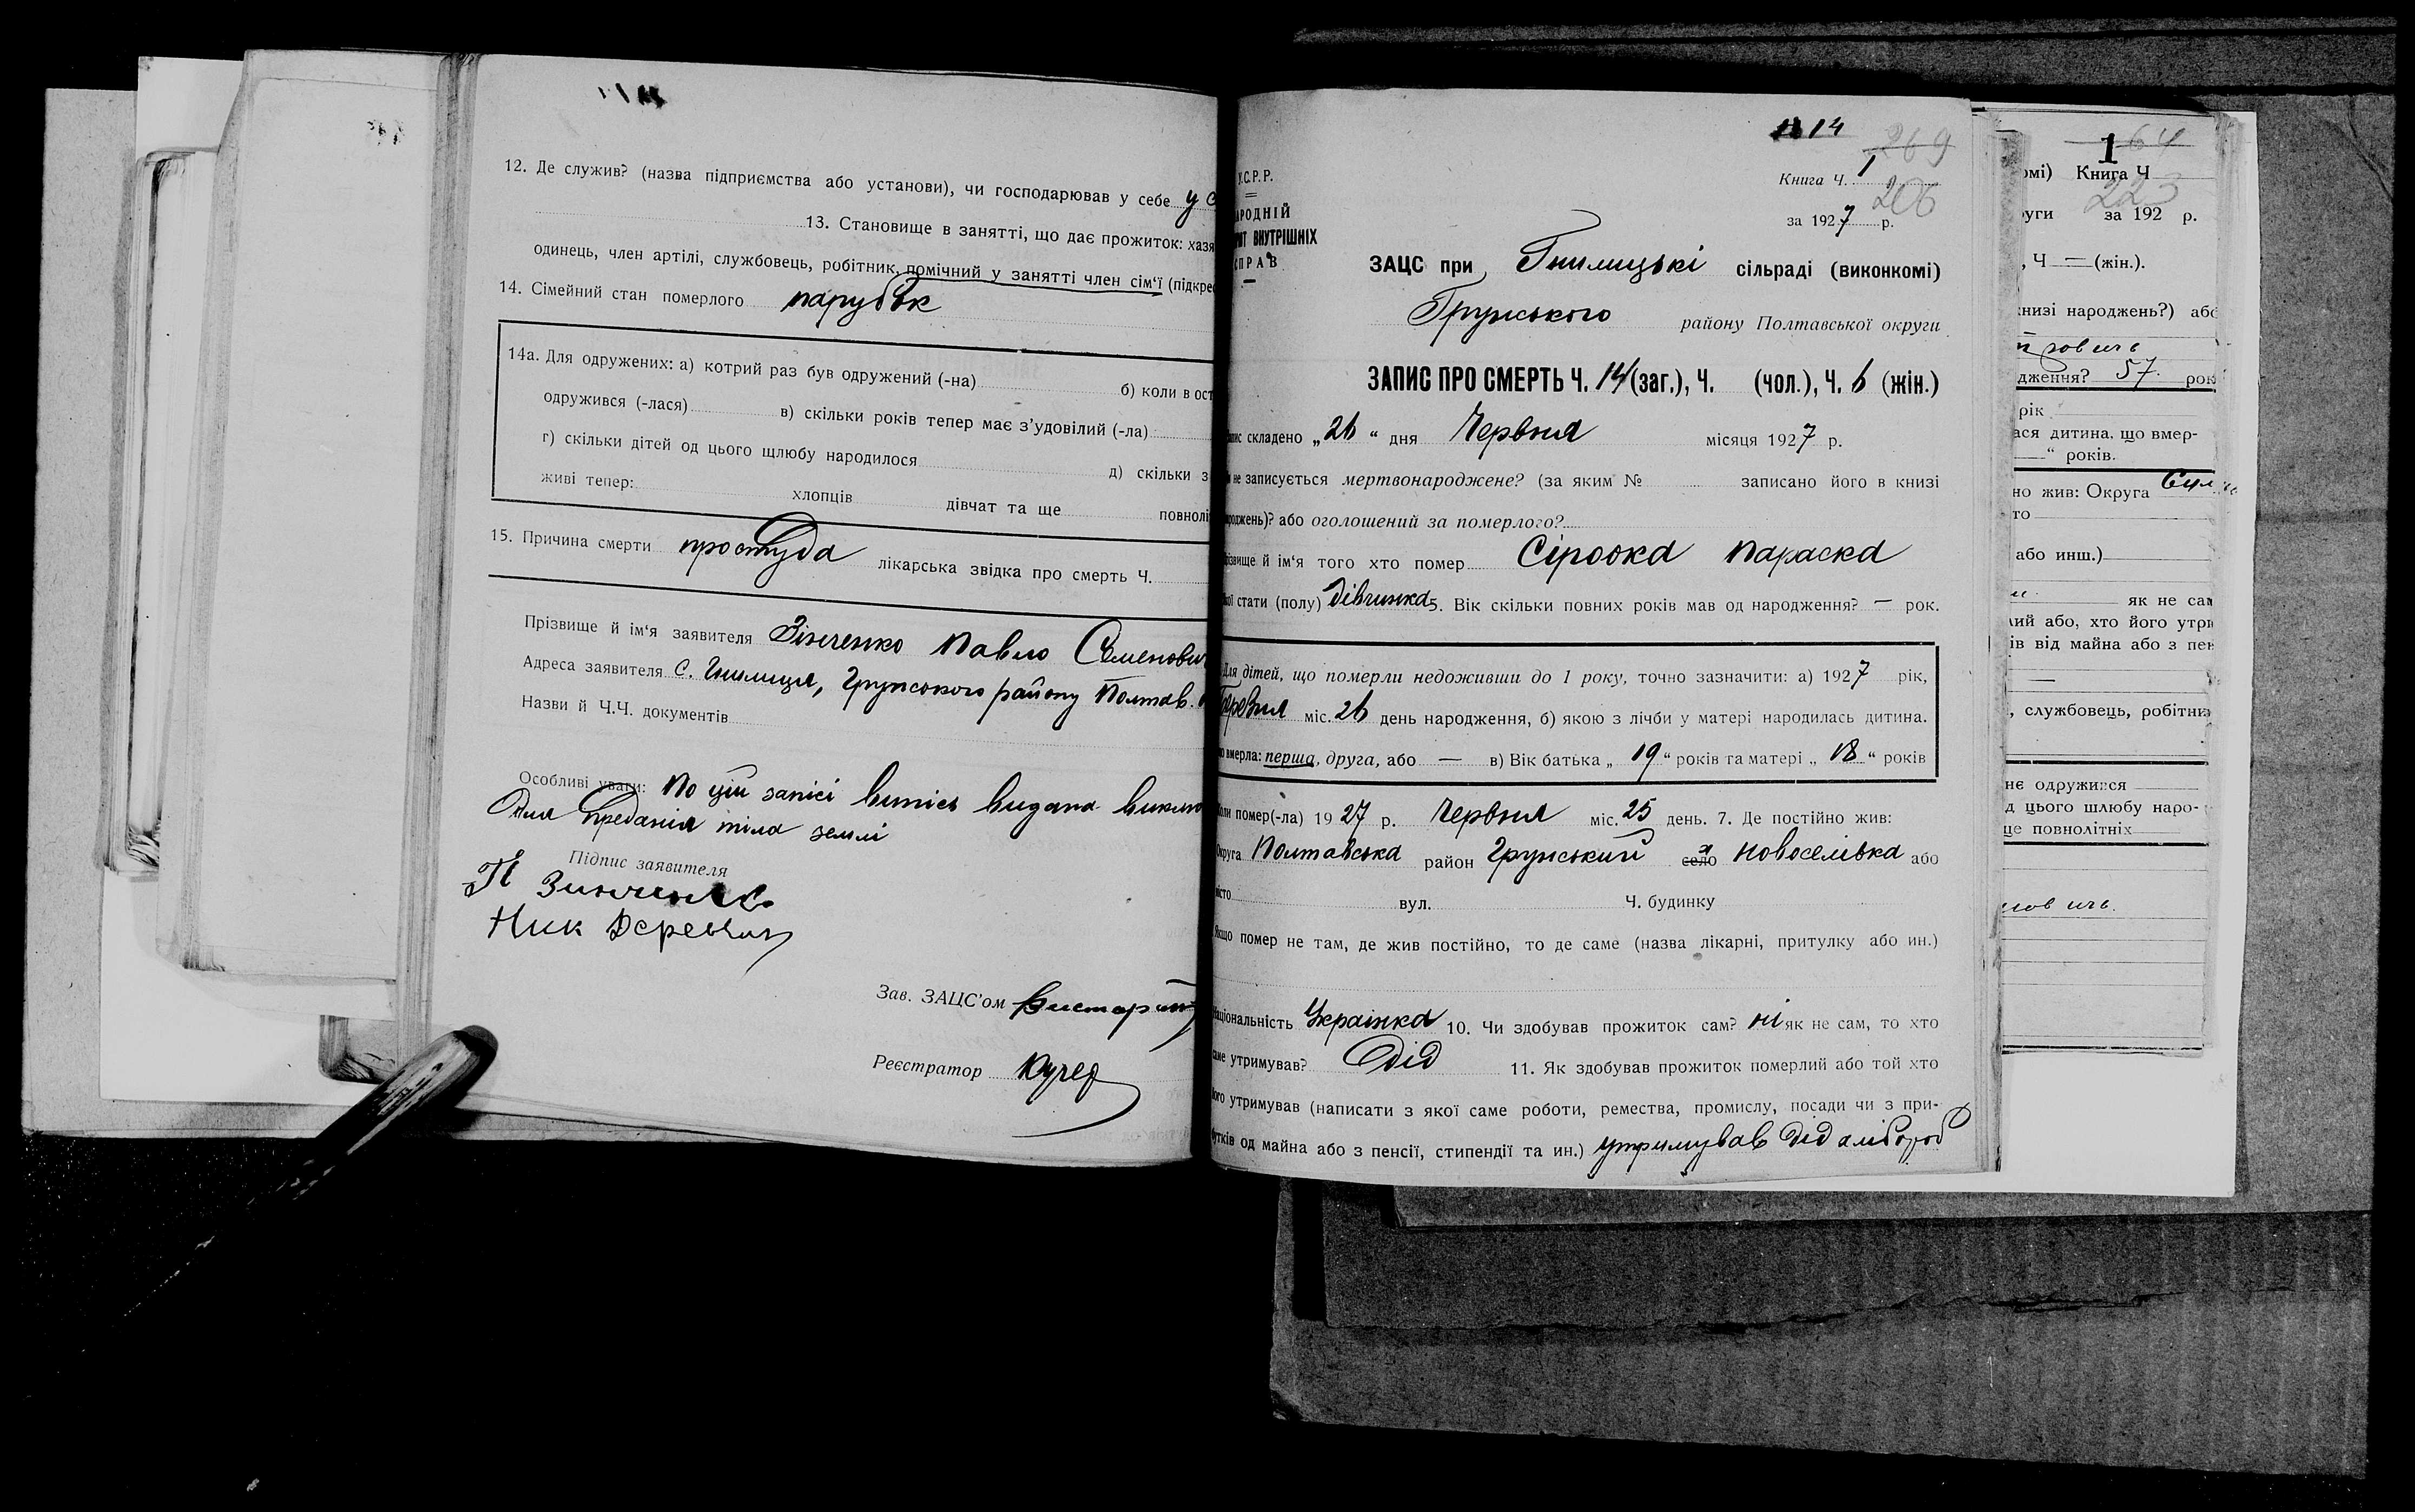 12. Де служив? (назва підприємства або установи), чи господарював у себе у с
13. Становище в занятті, що дає прожиток: хазя
одинець, член артілі, службовець, робітник, помічний у занятті член сім'ї (підкрес
14. Сімейний стан померлого парубок
14а. Для одружених: а) котрий раз був одружений (-на) б) коли в ост
одружився (-лася) в) скільки років тепер має з'удовілий (-ла)
г) скільки дітей од цього щлюбу народилося д) скільки з
живі тепер: хлопців дівчат та ще повноліт
15. Причина смерти простуда лікарська звідка про смерть Ч.
Прізвище й ім'я заявителя Зінченко Павло Семенович
Адреса заявителя с. Гнилиця, Грунського району Полтав.
Назви й Ч.Ч. документів
Особливі уваги: По цій запісі випісь видана виклю
для преданія тіла землі
Підпис заявителя
П Зинченко
Ник
Зав. ЗАЦС'ом
Реєстратор Кучер
14
269
Книга Ч. 1
206
за 1927 р.
У.С.Р.Р.
АРОДНІЙ
РІЯТ ВНУТРІШНІХ
СПРАВ
ЗАЦС при Гнилицькі сільраді (виконкомі)
Грунського району Полтавської округи
ЗАПИС ПРО СМЕРТЬ Ч. 14 (заг.), Ч. (чол.), Ч. 6 (жін.)
апис складено „26“ дня Червня місяця 1927 р.
и не записується мертвонароджене? (за яким № записано його в книзі
роджень)? або оголошений за померлого?
різвище й ім'я того хто помер Сіроока Параска
кої стати (полу) Дівчинка 5. Вік скільки повних років мав од народження? — рок.
Для дітей, що померли недоживши до 1 року, точно зазначити: а) 1927 рік,
міс. 26 день народження, б) якою з лічби у матері народилась дитина.
що вмерла: перша, друга, або — в) Вік батька „19“ років та матері „18“ років
Коли помер(-ла) 1927 р. Червня міс. 25 день. 7. Де постійно жив:
Округа Полтавська район Грунський село х Новоселівка або
місто вул. Ч. будинку
Якщо помер не там, де жив постійно, то де саме (назва лікарні, притулку або ин.)
Національність Українка 10. Чи здобував прожиток сам? ні як не сам, то хто
саме утримував? Дід 11. Як здобував прожиток померлий або той хто
його утримував (написати з якої саме роботи, ремества, промислу, посади чи з при-
бутків од майна або з пенсії, стипендії та ин.) утримував дід хлібороб
64
1
омі) Книга Ч
223
руги за 192 р.
, Ч — (жін.).
книзі народжень?) або
дження? 57 рок
рік
ася дитина, що вмер-
—“ років.
но жив: Округа
то
або инш.)
як не сам
лий або, хто його утри
ів від майна або з пен
—
, службовець, робітник
нє одружився
д цього шлюбу наро-
ще повнолітніх